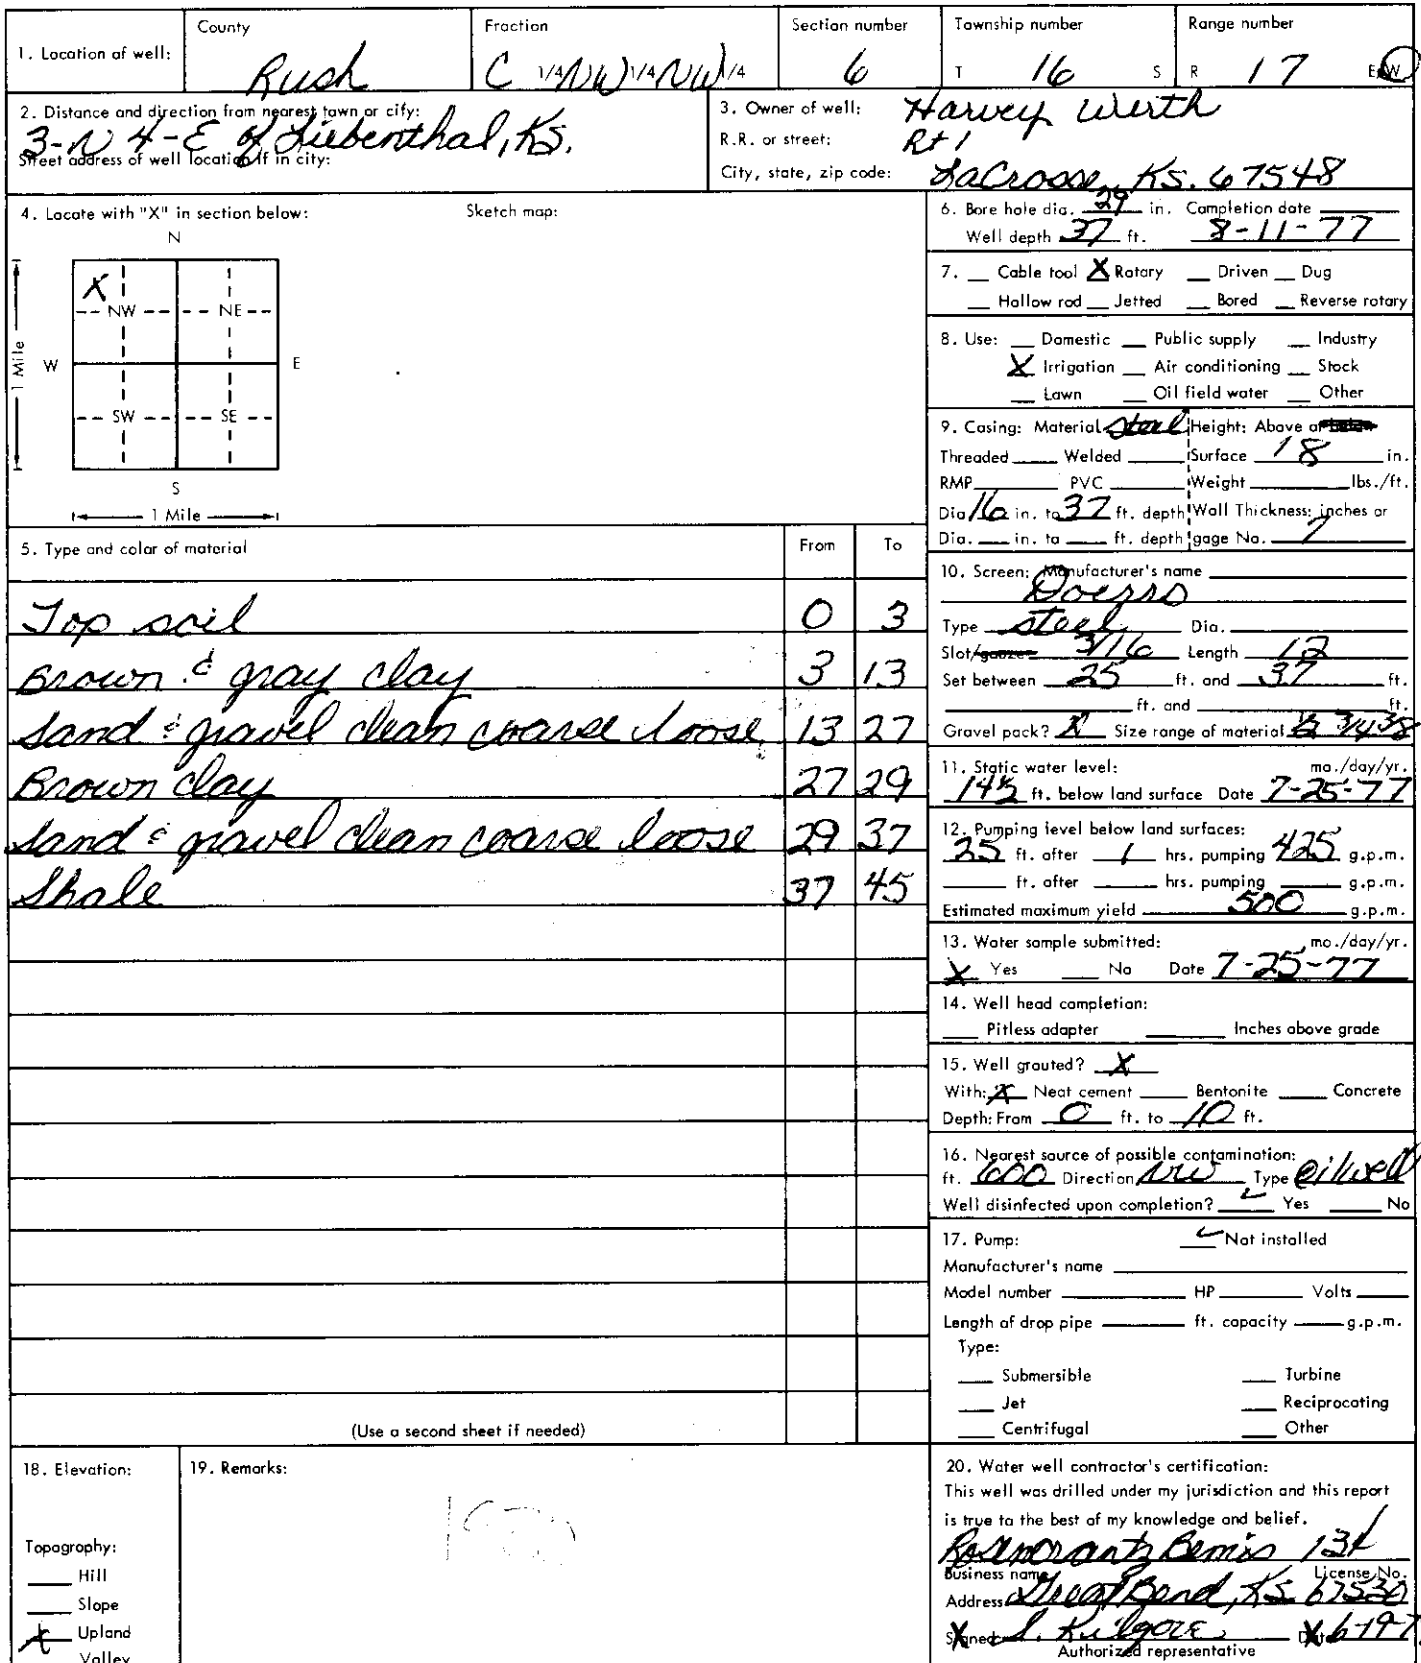 1. Location of well:
County
Rush
Fraction
C 1/4 NW 1/4 NW 1/4
Section number
6
Township number
T 16 S
Range number
R 17 E/W
2. Distance and direction from nearest town or city:
3-N 4-E of Liebenthal, Ks.
Street address of well location if in city:
3. Owner of well: Harvey Werth
R.R. or street: Rt 1
City, state, zip code: LaCrosse, Ks. 67548
4. Locate with "X" in section below:
Sketch map:
N
X
NW NE
W E
1 Mile
SW SE
S
1 Mile
5. Type and color of material From To
Top soil 0 3
Brown & gray clay 3 13
Sand & gravel clean coarse loose 13 27
Brown clay 27 29
Sand & gravel clean coarse loose 29 37
Shale 37 45
(Use a second sheet if needed)
6. Bore hole dia. 29 in. Completion date
Well depth 37 ft. 8-11-77
7. Cable tool X Rotary Driven Dug
Hollow rod Jetted Bored Reverse rotary
8. Use: Domestic Public supply Industry
X Irrigation Air conditioning Stock
Lawn Oil field water Other
9. Casing: Material Steel Height: Above or below
Threaded Welded Surface 18 in.
RMP PVC Weight lbs./ft.
Dia 16 in. to 37 ft. depth Wall Thickness: inches or
Dia. in. to ft. depth gage No. 7
10. Screen: Manufacturer's name
Doerrs
Type steel Dia.
Slot/gauze 3/16 Length 12
Set between 25 ft. and 37 ft.
ft. and ft.
Gravel pack? X Size range of material 1/2 3/4 3/8
11. Static water level: mo./day/yr.
14 1/2 ft. below land surface Date 7-25-77
12. Pumping level below land surfaces:
25 ft. after 1 hrs. pumping 425 g.p.m.
ft. after hrs. pumping g.p.m.
Estimated maximum yield 500 g.p.m.
13. Water sample submitted: mo./day/yr.
X Yes No Date 7-25-77
14. Well head completion:
Pitless adapter Inches above grade
15. Well grouted? X
With: X Neat cement Bentonite Concrete
Depth: From 0 ft. to 10 ft.
16. Nearest source of possible contamination:
ft. 600 Direction NW Type oilwell
Well disinfected upon completion? ✓ Yes No
17. Pump: ✓ Not installed
Manufacturer's name
Model number HP Volts
Length of drop pipe ft. capacity g.p.m.
Type:
Submersible Turbine
Jet Reciprocating
Centrifugal Other
18. Elevation:
Topography:
Hill
Slope
X Upland
Valley
19. Remarks:
20. Water well contractor's certification:
This well was drilled under my jurisdiction and this report
is true to the best of my knowledge and belief.
Rosencrantz Bemis 134
Business name License No.
Address Great Bend, Ks 67530
Signed S. Kilgore Date
Authorized representative